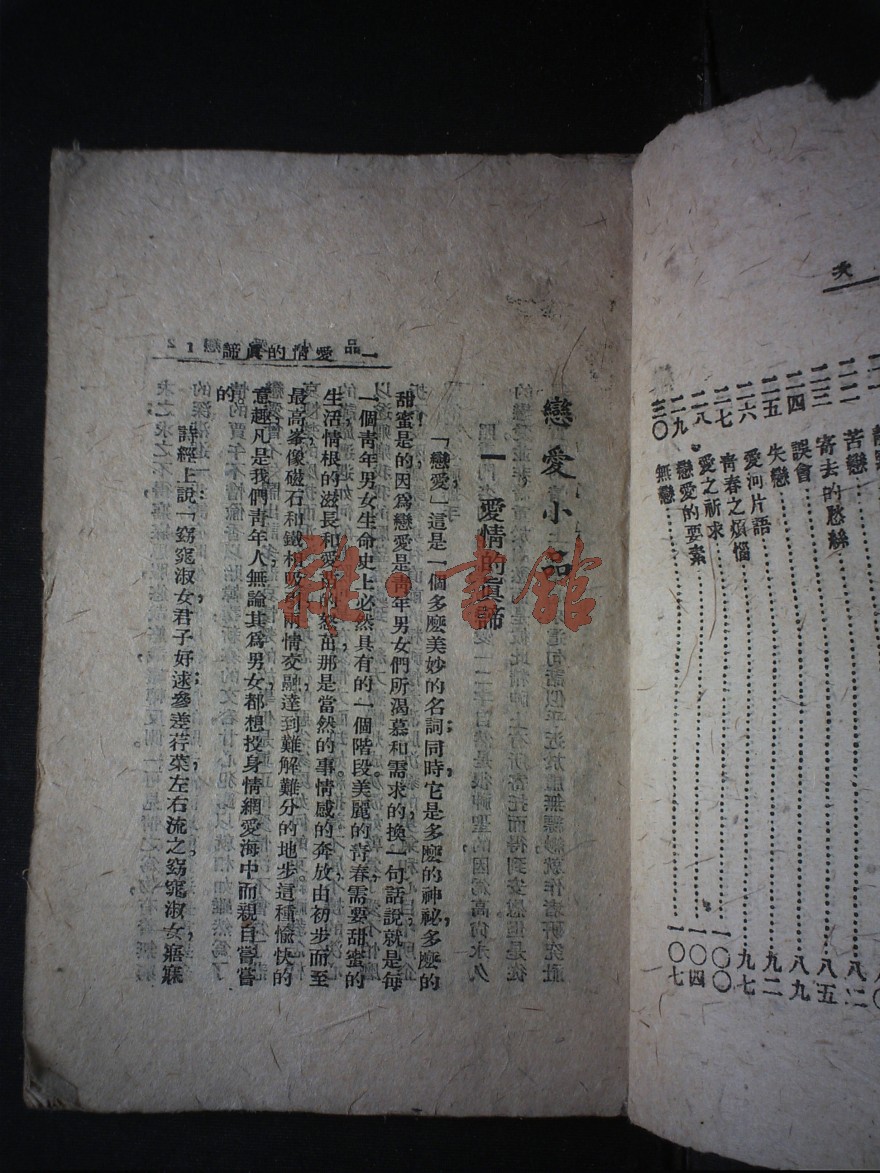 次
二二
苦戀
八二
二三
寄去的愁絲
八五
二四
誤會
八九
二五
失戀
九二
二六
愛河片語
九七
二七
青春之煩惱
一〇〇
二八
愛之祈求
一〇四
二九
戀愛的要素
一〇七
三〇
無戀
一 愛情的眞諦 1
戀愛小品
一 愛情的眞諦
「戀愛」!這是一個多麼美妙的名詞;同時,它是多麼的神祕,多麼的
甜蜜,是的,因爲戀愛是靑年男女們所渴慕和需求的,換一句話說,就是每
一個靑年男女生命史上必然具有的一個階段。美麗的靑春,需要甜蜜的
生活,情根的滋長,和愛苗的怒茁,那是當然的事。情感的奔放,由初步而至
最高峯,像磁石和鐵相吸引,兩情交融,達到難解難分的地步,這種愉快的
意趣,凡是我們靑年人,無論其爲男女,都想投身情網愛海中而親自嘗嘗
的。
詩經上說:「窈窕淑女,君子好逑,參差荇菜,左右流之,窈窕淑女,寤寐
雜·書館